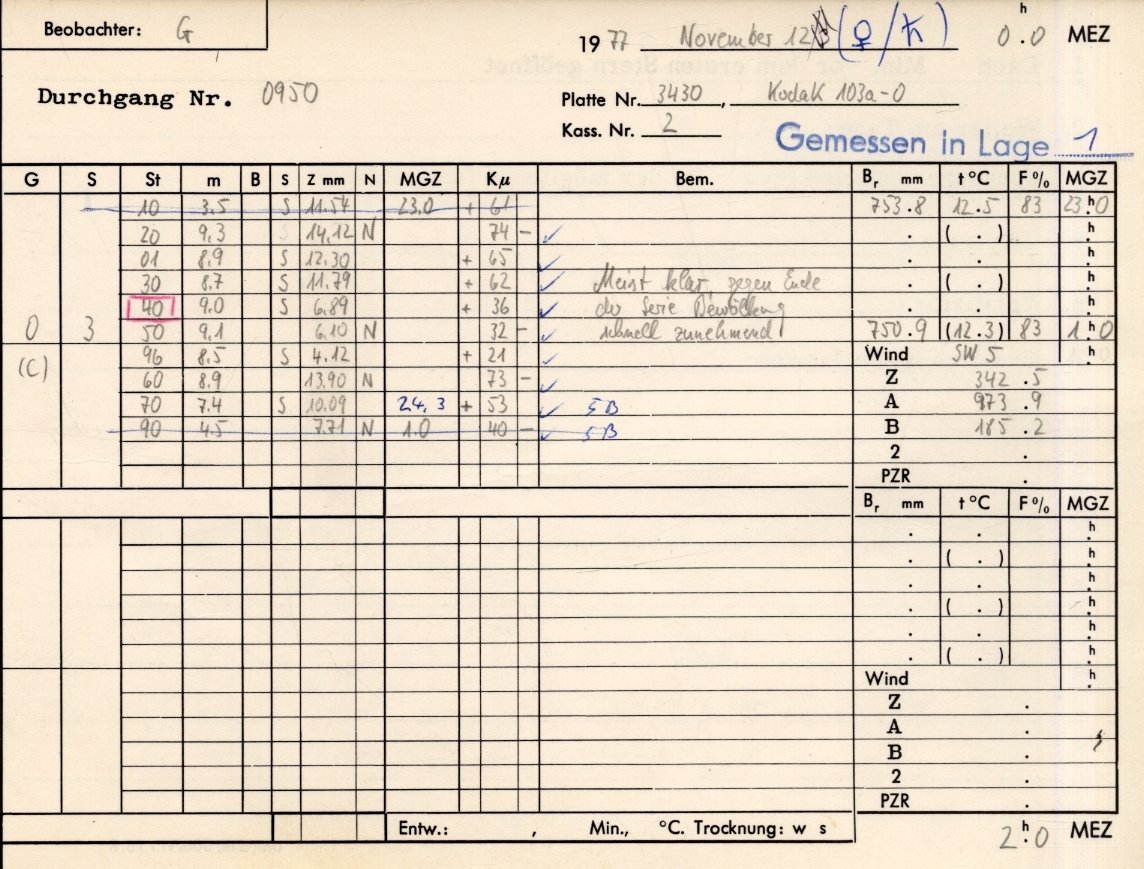 Beobachter: G
1977 November 12 (♀/♄) 0.0 h MEZ
Durchgang Nr. 0950
Platte Nr. 3430, Kodak 103a-0
Kass. Nr. 2
Gemessen in Lage 1
G S St m B S Z mm N MGZ Kμ Bem. Br mm t °C F % MGZ
10 3.5 S 11.54 23.0 + 61 753.8 12.5 83 23.h0
20 9,3 S 14,12 N 74 - ✓ . ( . ) h.
01 8,9 S 12.30 + 65 ✓ . . h.
30 8.7 S 11.79 + 62 ✓ Meist klar, gegen Ende . ( . ) h.
40 9.0 S 6.89 + 36 ✓ der Serie Bewölkung . . h.
0 3 50 9,1 6.10 N 32 - ✓ schnell zunehmend 750.9 (12.3) 83 1.h0
(C) 96 8.5 S 4.12 + 21 ✓ Wind SW 5 h.
60 8.9 13.90 N 73 - ✓ Z 342.5
70 7.4 S 10.09 24,3 + 53 ✓ 5B A 973.9
90 4.5 7.71 N 1.0 40 - ✓ 5B B 185.2
2 .
PZR .
Br mm t °C F % MGZ
. . h.
. ( . ) h.
. . h.
. ( . ) h.
. . h.
. ( . ) h.
Wind h.
Z .
A .
B .
2 .
PZR .
Entw.: , Min., °C. Trocknung: w s
2.h0 MEZ